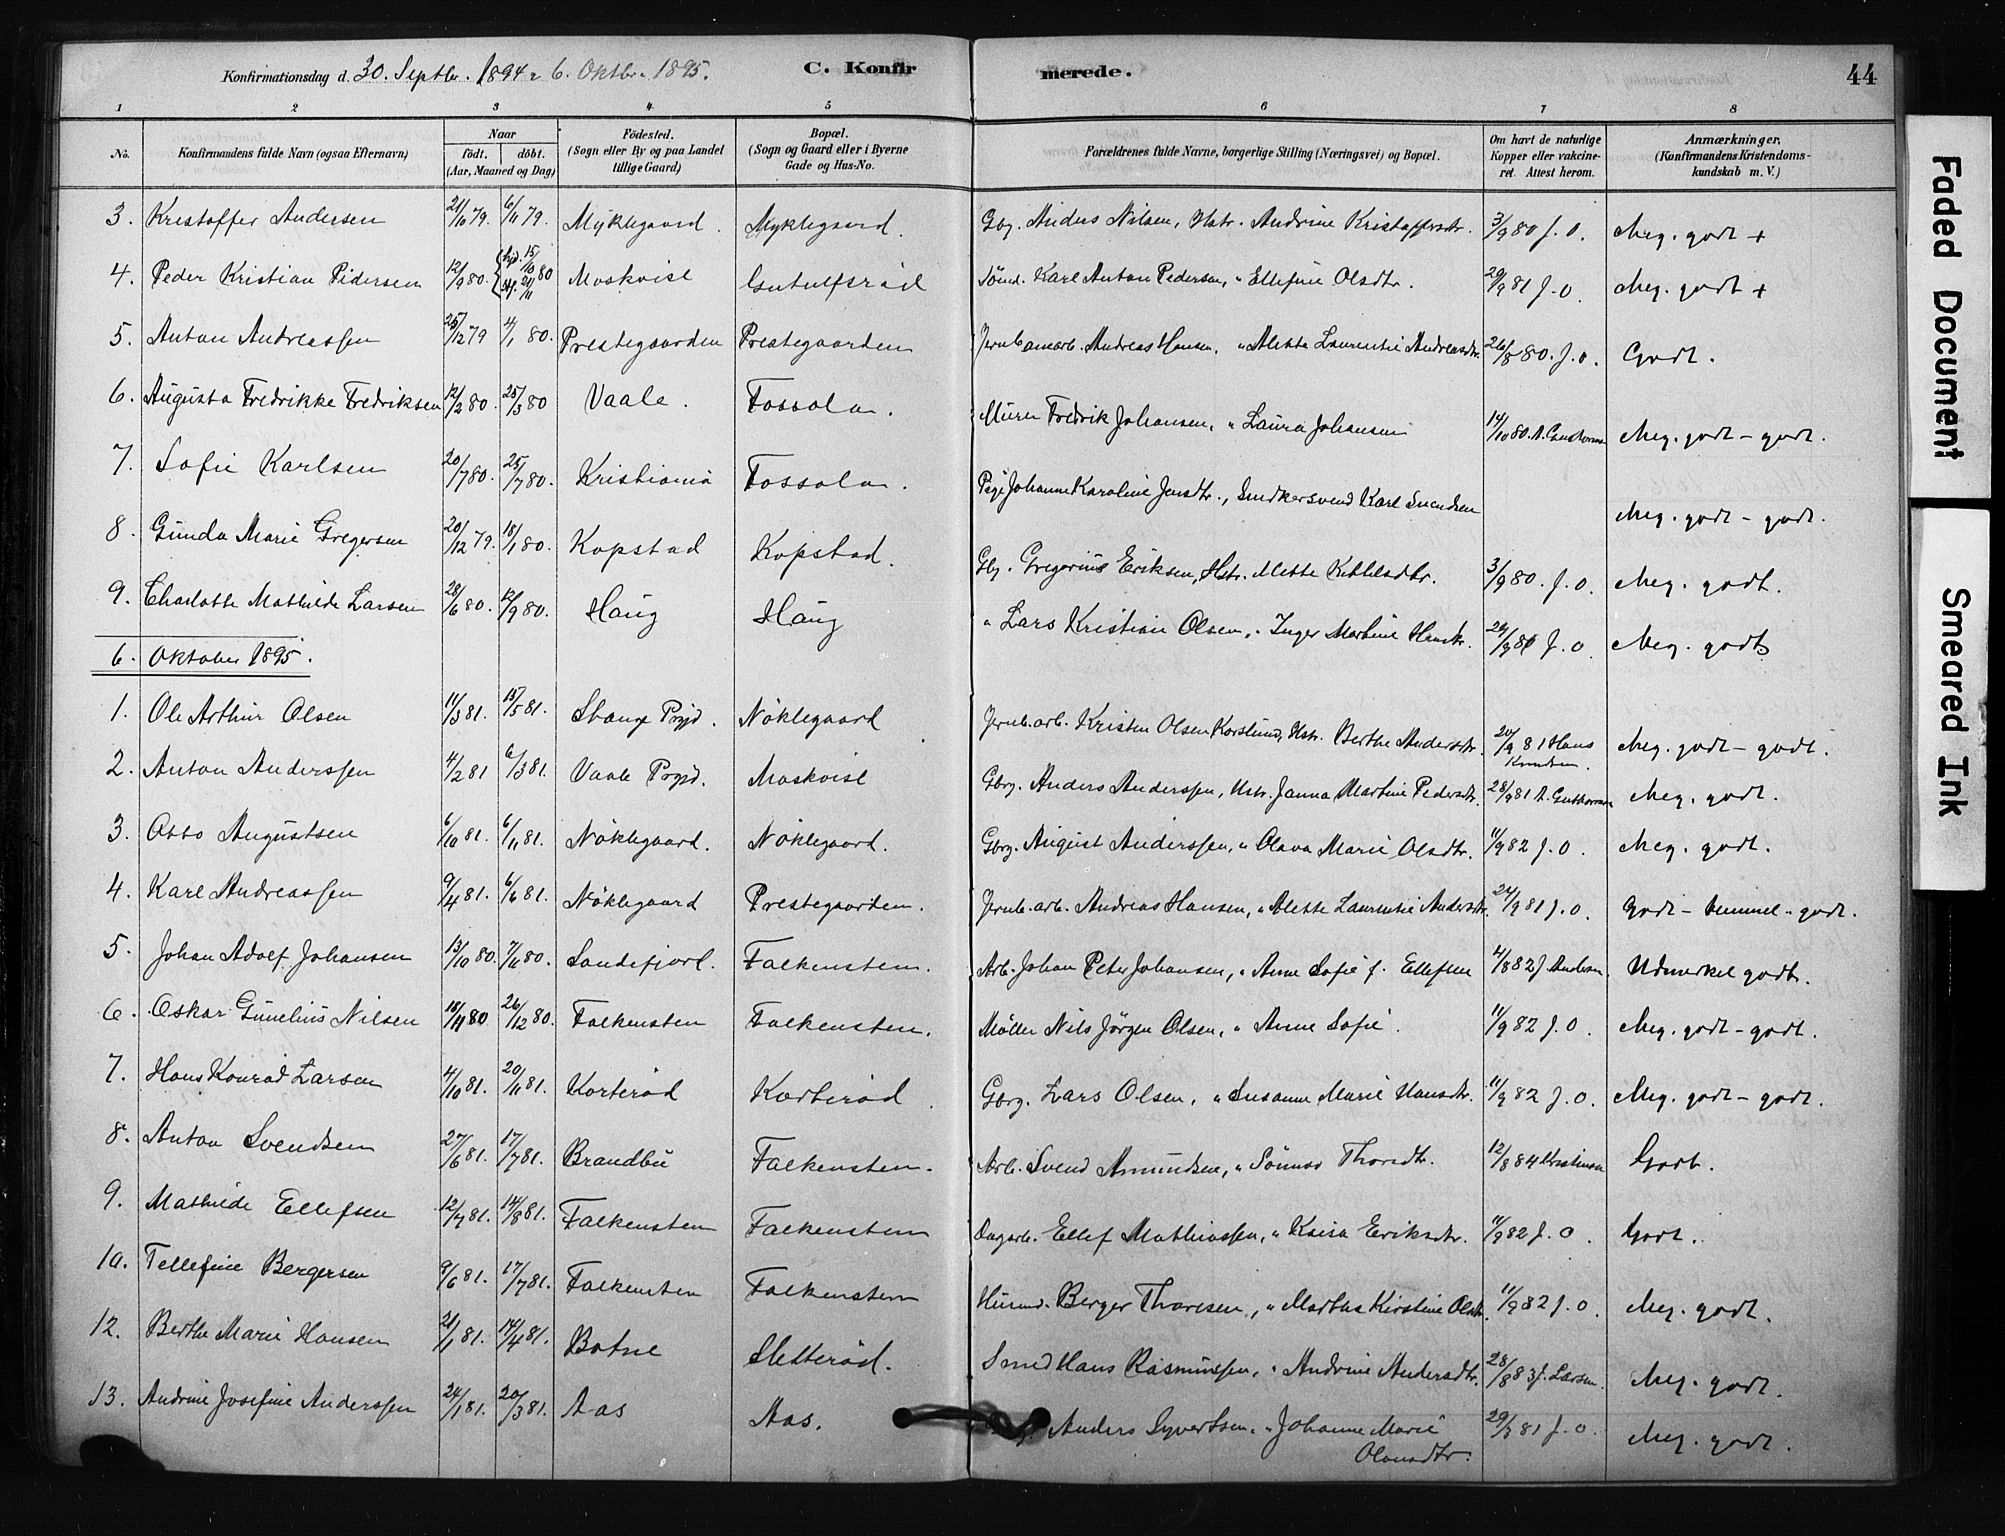 Konfirmationsdag d. 30. Septbr. 1894 & 6. Oktbr. 1895. C. Konfirmerede. 44
1 2 3 4 5 6 7 8
No. Konfirmandens fulde Navn (ogsaa Efternavn) Naar födt. döbt. (Aar, Maaned og Dag) Födested. (Sogn eller By og paa Landet tillige Gaard) Bopæl. (Sogn og Gaard eller i Byerne Gade og Hus-No. Forældrenes fulde Navne, borgerlige Stilling (Næringsvei) og Bopæl. Om havt de naturlige Kopper eller vakcineret. Attest herom. Anmærkninger. (Konfirmandens Kristendomskundskab m. V.)
3. Kristoffer Andersen 21/10 79. 6/11 79. Myklegaard. Myklegaard. Gbg. Anders Nilsen, Hstr. Andrine Kristoffersdtr. 3/9 80 J. O. Meg. godt +
4. Peder Kristian Pedersen 12/9 80. hjd. 15/10 80 stf. 21/11 Moskvist Gutulfsröd Tömd. Karl Anton Pedersen, " Ellefine Olsdtr. 29/9 81 J. O. Meg. godt +
5. Anton Andreassen 25/12 79 4/1 80. Prestegaarden Prestegaarden Jernbanearb. Andreas Hansen, " Alette Laurentie Andreasdtr. 26/8 80. J. O. Godt.
6. Augusta Fredrikke Fredriksen 12/2 80. 28/3 80 Vaale. Fossola. Murer Fredrik Johansen, " Laura Johansen 14/10 80. A. Guthorm Meg. godt - godt.
7. Sofie Karlsen 20/7 80. 25/7 80. Kristiania Fossola. Pige Johanne Karoline Jensdtr., Smedkersvend Karl Svendsen Meg. godt - godt.
8. Gunda Marie Gregersen 20/12 79. 18/1 80. Kopstad Kopstad. Gbg. Gregerius Eriksen, Hstr. Mette Kittelsdtr. 3/9 80. J. O. Meg. godt.
9. Charlotte Mathilde Larsen 28/6 80. 12/9 80. Haug Haug " Lars Kristian Olsen, " Inger Martine Hansdtr. 29/9 81 J. O. Meg. godt
6. Oktober 1895.
1. Ole Arthur Olsen 11/3 81. 15/5 81. Stange Prgjd. Nöklegaard Jernb.arb. Kristen Olsen Korslund, Hstr. Berthe Andersdtr. 20/9 81 Hans Knudsen.
Meg. godt - godt.
2. Anton Anderssen 4/2 81 6/3 81. Vaale Prgjd. Moskvist Gbrg. Anders Anderssen, Hstr. Janna Martine Pedersdtr. 28/9 81 A. Guthormsen Meg. godt.
3. Otto Augustsen 6/10 81. 6/11 81. Nöklegaard. Nöklegaard. Gbrg. August Anderssen, " Olava Marie Olsdtr. 11/9 82 J. O. Meg. godt.
4. Karl Andreassen 9/4 81. 6/6 81. Nöklegaard Prestegaarden. Jernb.arb. Andreas Hansen, " Alette Laurentie Andersdtr. 24/9 81 J. O. Godt - temmel. godt.
5. Johan Adolf Johansen 13/10 80. 7/11 80. Sandefjord. Falkensten. Arb. Johan Peter Johansen, " Anne Sofie f. Ellefsen 4/8 82 J. Andersen. Udmerket godt.
6. Oskar Gunelius Nilsen 18/11 80 26/12 80. Falkensten Falkensten. Möller Nils Jörgen Olsen, " Anne Sofie. 11/9 82 J. O. Meg. godt - godt.
7. Hans Konrad Larsen 4/10 81. 20/11 81. Korteröd Korteröd. Gbrg. Lars Olsen, " Susanne Marie Hansdtr. 11/9 82 J. O. Meg. godt - godt.
8. Anton Svendsen 27/6 81. 17/7 81. Brandbu Falkensten. Arb. Svend Amundsen, " Sönnov Thoredtr. 12/8 84 Kristiansen Godt.
9. Mathilde Ellefsen 12/7 81. 14/8 81. Falkensten Falkensten Dagarb. Ellef Mathiassen, " Kaisa Eriksdtr. 11/9 82 J. O. Godt.
10. Tellefine Bergersen 9/6 81. 17/7 81. Falkensten Falkensten Husmd. Berger Thoresen, " Marthe Kirstine Olsdtr. 11/9 82 J. O. Meg. godt.
12. Berthe Marie Hansen 21/1 81. 14/4 81. Botne Sletteröd. Smed Hans Rasmussen, " Andrine Andersdtr. 28/8 83 J. Larsen. Meg. godt.
13. Andrine Josefine Anderssen 24/1 81. 20/3 81. Aas Aas. Anders Syvertsen, " Johanne Marie Olavsdtr. 29/3 81 J. O. Meg. godt.
Faded Document
Smeared Ink